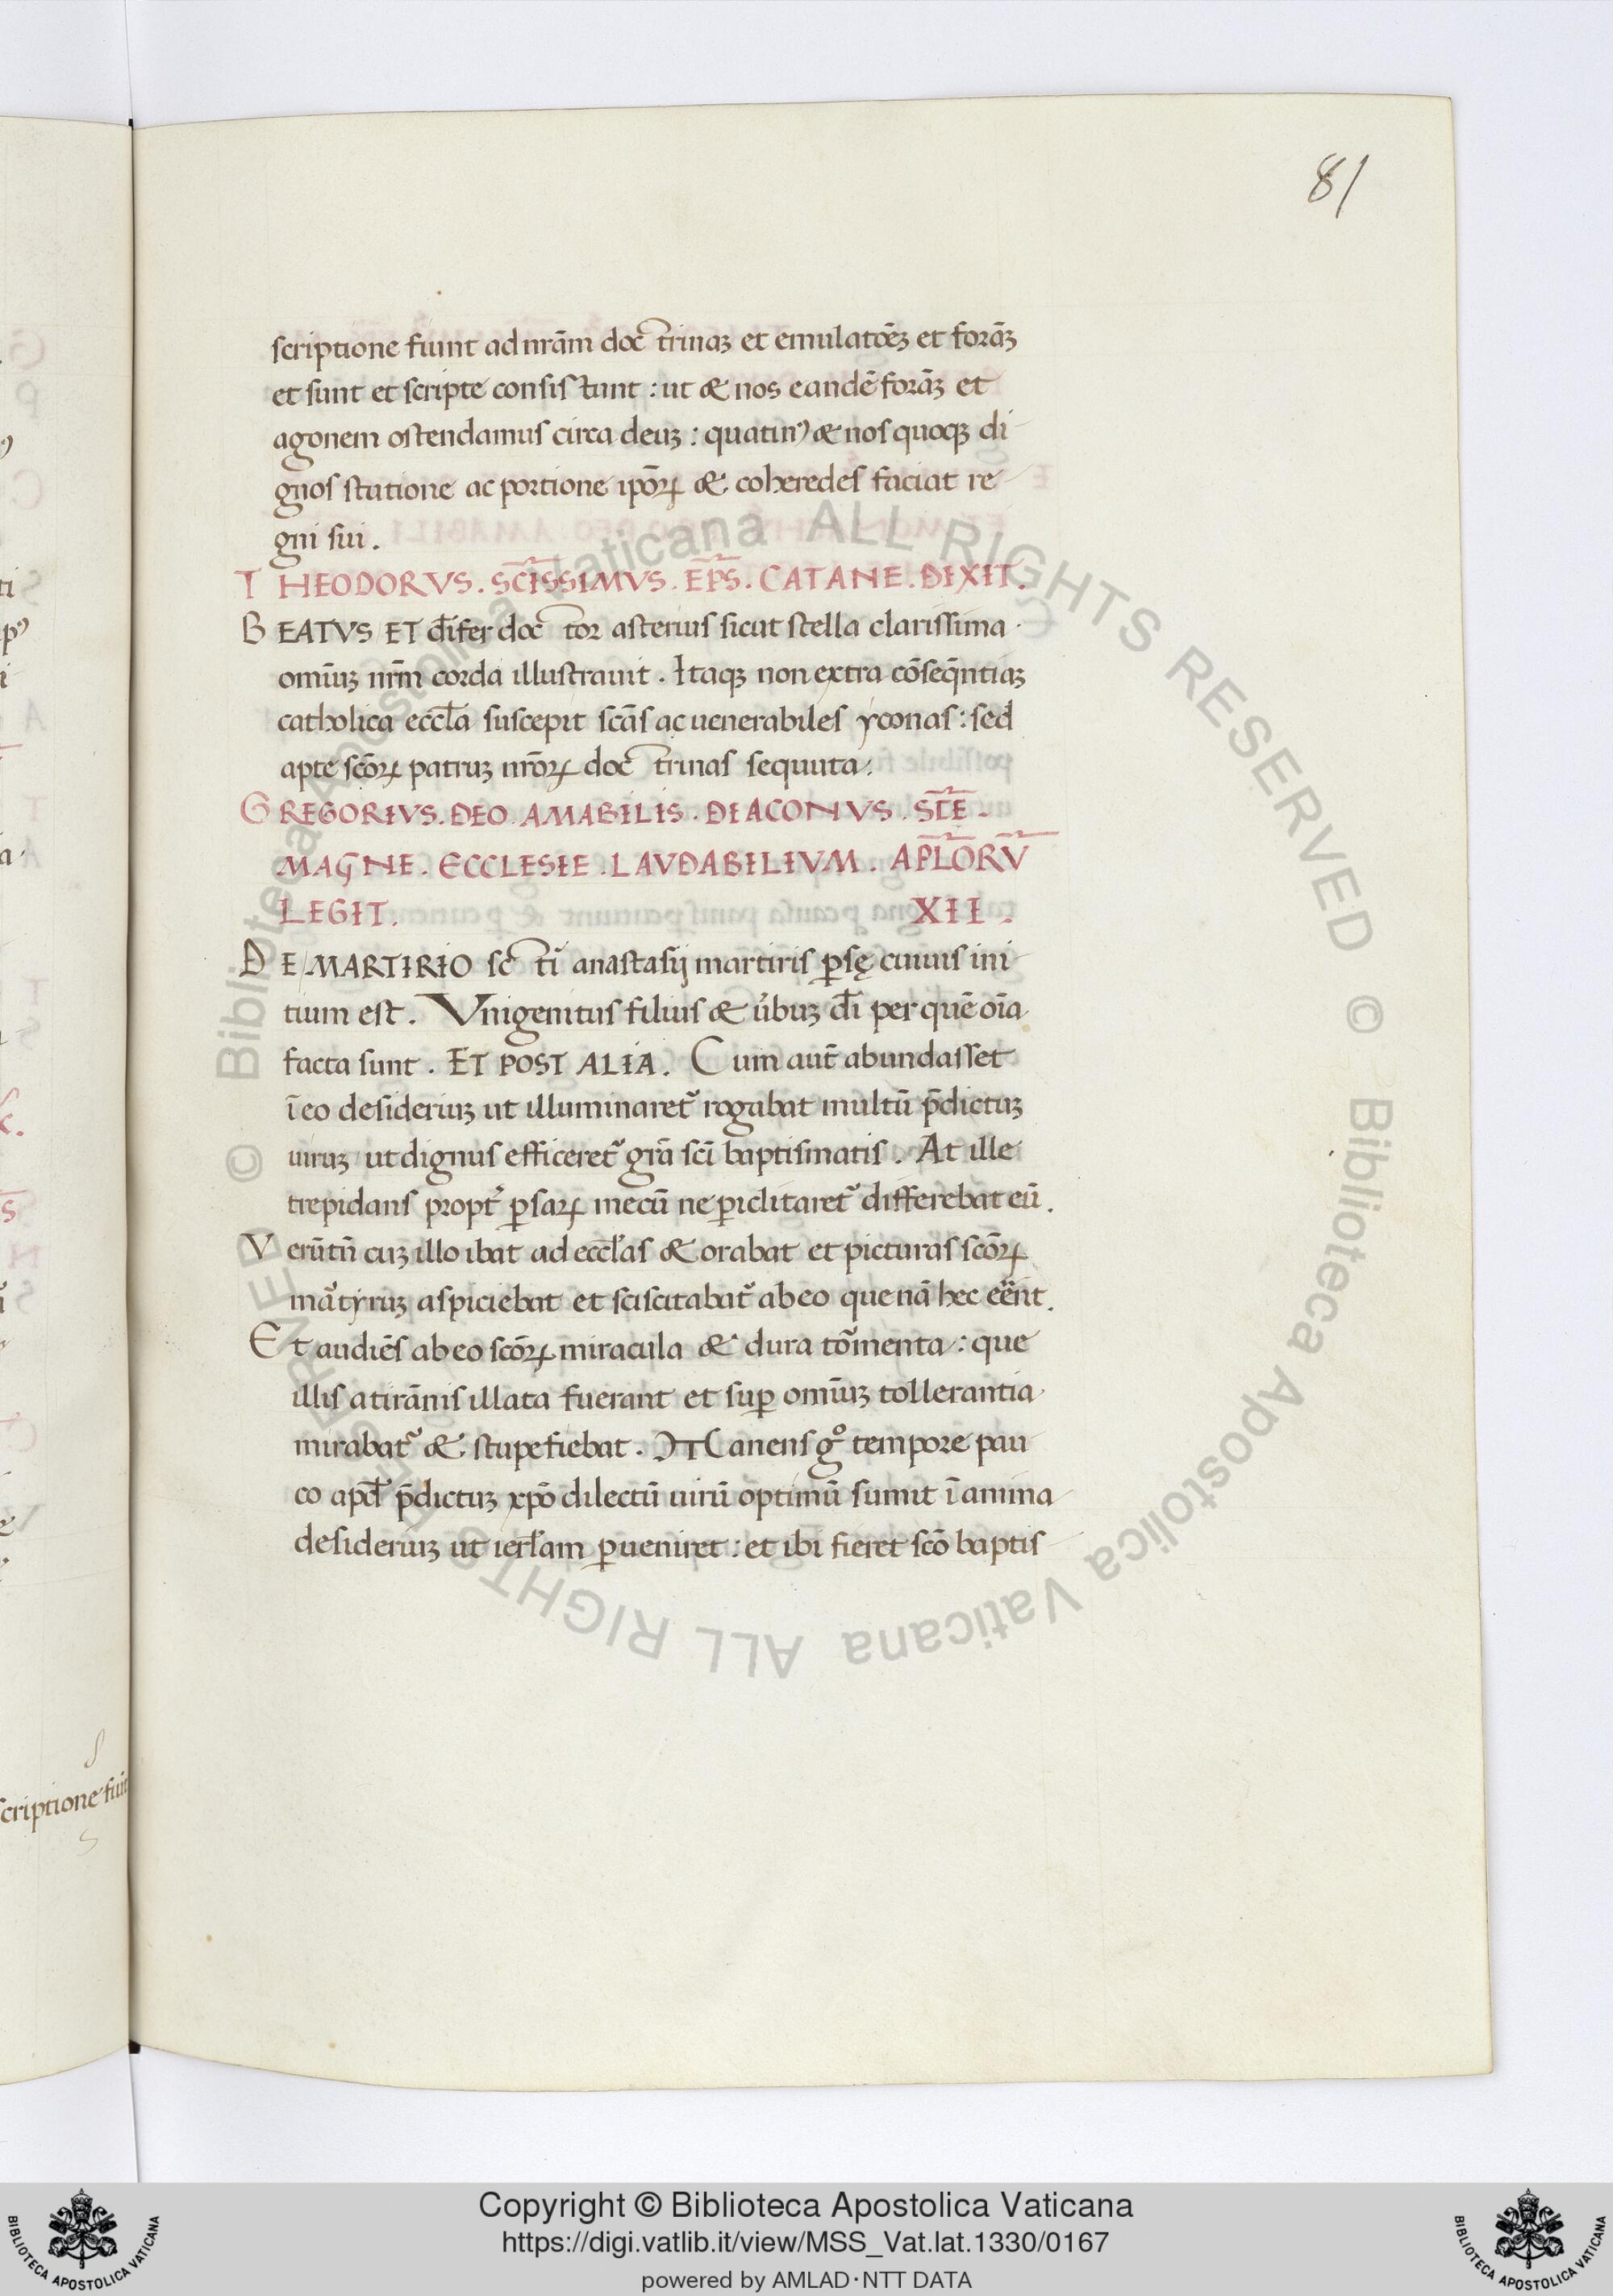 81
scriptione fiunt ad nr̄am doctrinaꝫ et emulatōeꝫ et forāꝫ
et sunt et scripte consistunt : ut & nos eandē forāꝫ et
agonem ostendamus circa deuꝫ : quatinꝰ & nos quoqꝫ di
gnos statione ac portione ipōꝝ & coheredes faciat re
gni sui .
THEODORVS . SC̄ISSIMVS . EP̄S . CATANE . DIXIT .
BEATVS ET d̄ifer doctor asterius sicut stella clarissima .
omīuꝫ nr̄m corda illustrauit . Itaqꝫ non extra cōseq̄ntiaꝫ
catholica eccl̄a suscepit sc̄as ac uenerabiles yconas : sed
apte scōꝝ patruꝫ nr̄oꝝ doctrinas sequuta .
GREGORIVS . DEO . AMABILIS . DIACONVS . SC̄E .
MAGNE . ECCLESIE . LAVDABILIVM . APL̄ORV̄
LEGIT . XII .
DE MARTIRIO sctī anastasij martiris ꝑsę cuius ini
tium est . Vnigenitus filius & u̓buꝫ d̄i per quē oīa
facta sunt . ET POST ALIA . Cum aut̄ abundasset
ī eo desideriuꝫ ut illuminaret᷑ rogabat multū p̄dictuꝫ
uiruꝫ ut dignus efficeret᷑ gr̄a sc̄i baptismatis . At ille
trepidans propt̓ ꝑsaꝝ mecū ne ꝑiclitaret᷑ differebat eū .
Verūtn̄ cuꝫ illo ibat ad eccl̄as & orabat et picturas scōꝝ
ma᷑tyruꝫ aspiciebat et sciscitabat᷑ ab eo que nā hec eēnt .
Et audiēs ab eo scōꝝ miracula & dura to᷑menta : que
illis a tirānis illata fuerant et suꝑ omīuꝫ tollerantia
mirabat᷑ & stupefiebat . Manens gͦ tempore pau
co apd̄ p̄dictuꝫ xp̄o dilectū uirū optimū sumit ī anima
desideriuꝫ ut ierl̄am ꝑueniret : et ibi fieret scō baptis
scriptione fiūt
Copyright © Biblioteca Apostolica Vaticana
https://digi.vatlib.it/view/MSS_Vat.lat.1330/0167
powered by AMLAD·NTT DATA
BIBLIOTECA APOSTOLICA VATICANA
BIBLIOTECA APOSTOLICA VATICANA
© Biblioteca Apostolica Vaticana ALL RIGHTS RESERVED
© Biblioteca Apostolica Vaticana ALL RIGHTS RESERVED